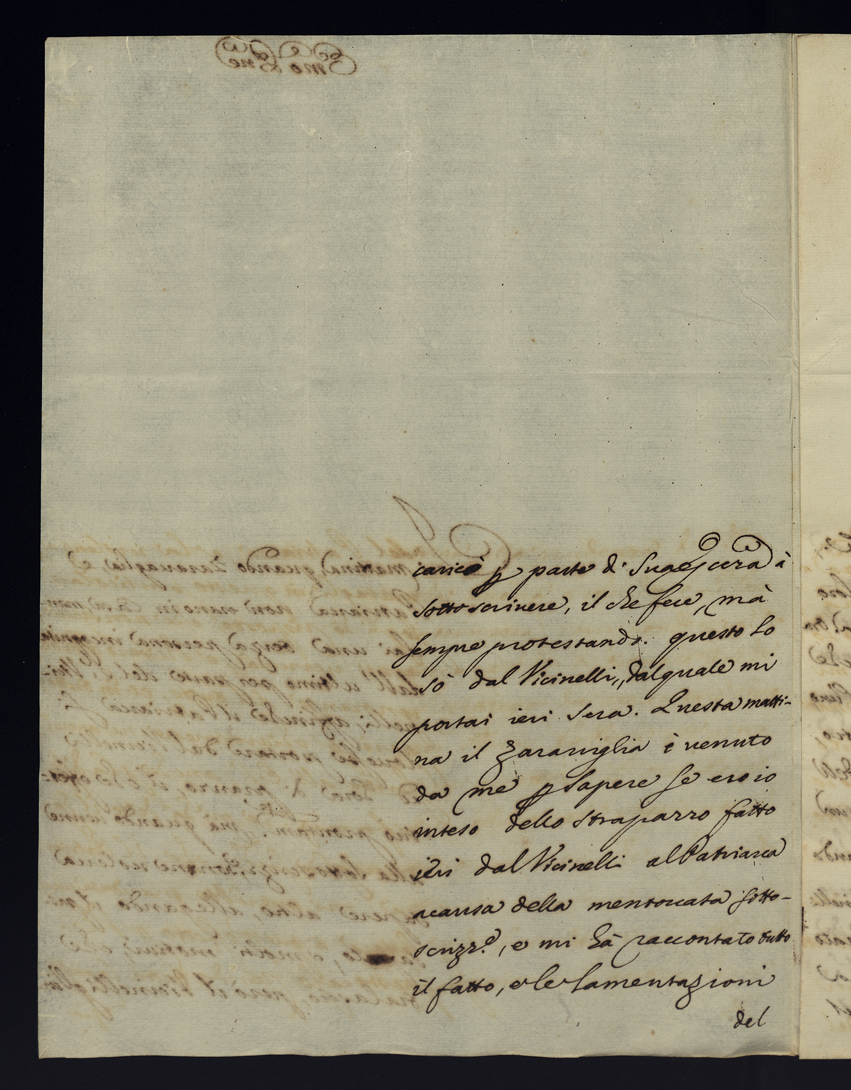 caricò p parte di Sua Eccza à
sottoscrivere, il che fece, mà
sempre protestando. questo lo
sò dal Vicinelli, dal quale mi
portai ieri sera. Questa matti-
na il Zaraviglia è venuto
da me p sapere se ero io
inteso dello strapazzo fatto
ieri dal Vicinelli al Patriarca
acausa della mentovata sotto-
scrizze, e mi hà raccontato tutto
il fatto, e le lamentazioni
del